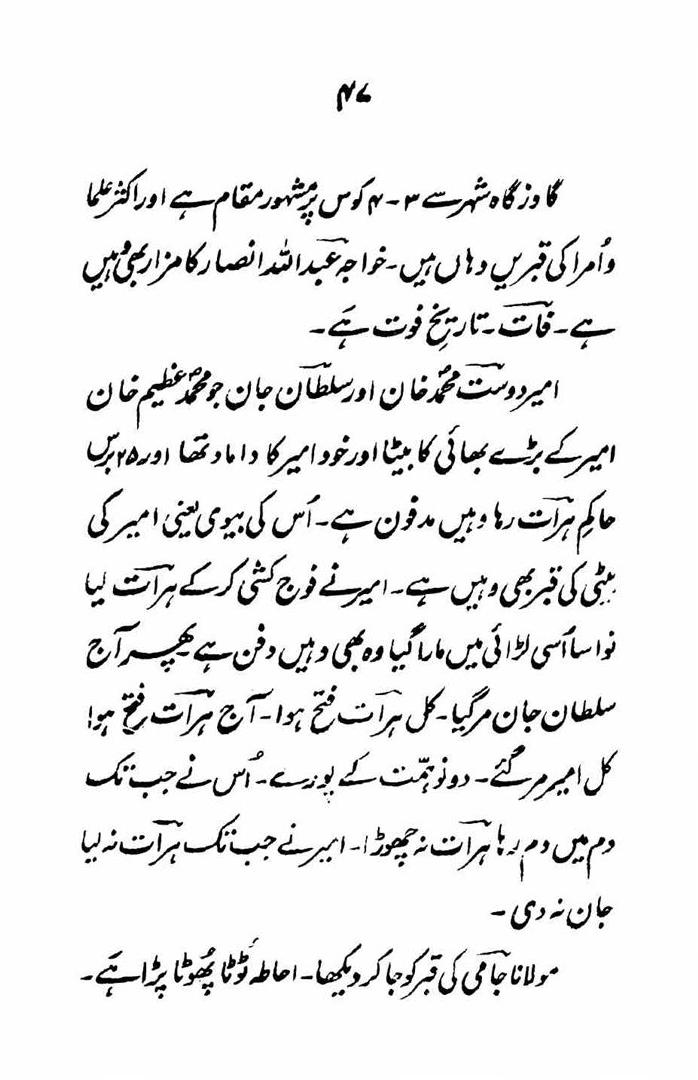 ۴۷
گاوزگاہ شہر سے ۳-۴ کوس پر مشہور مقام ہے اور اکثر علما
و اُمرا کی قبریں وہاں ہیں۔ خواجہ عبداللہ انصار کا مزار بھی وہیں
ہے۔ فات۔ تاریخ فوت ہَے۔
امیر دوست محمدؐ خان اور سلطان جان جو محمدؐ عظیم خان
امیر کے بڑے بھائی کا بیٹا اور خود امیر کا داماد تھا اور ۲۵ برس
حاکمِ ہرات رہا وہیں مدفون ہے۔ اُس کی بیوی یعنی امیر کی
بیٹی کی قبر بھی وہیں ہے۔ امیر نے فوج کشی کرکے ہرات لیا
نواسا اُسی لڑائی میں مارا گیا وہ بھی وہیں دفن ہے پھر آج
سلطان جان مرگیا۔ کل ہرات فتح ہوا۔ آج ہرات فتح ہوا
کل امیر مرگئے۔ دونو ہمّت کے پورے۔ اُس نے جب تک
دم میں دم رہا ہرات نہ چھوڑا۔ امیر نے جب تک ہرات نہ لیا
جان نہ دی۔
مولانا جامی کی قبر کو جا کر دیکھا۔ احاطہ ٹوٹا پُھوٹا پڑا ہَے۔